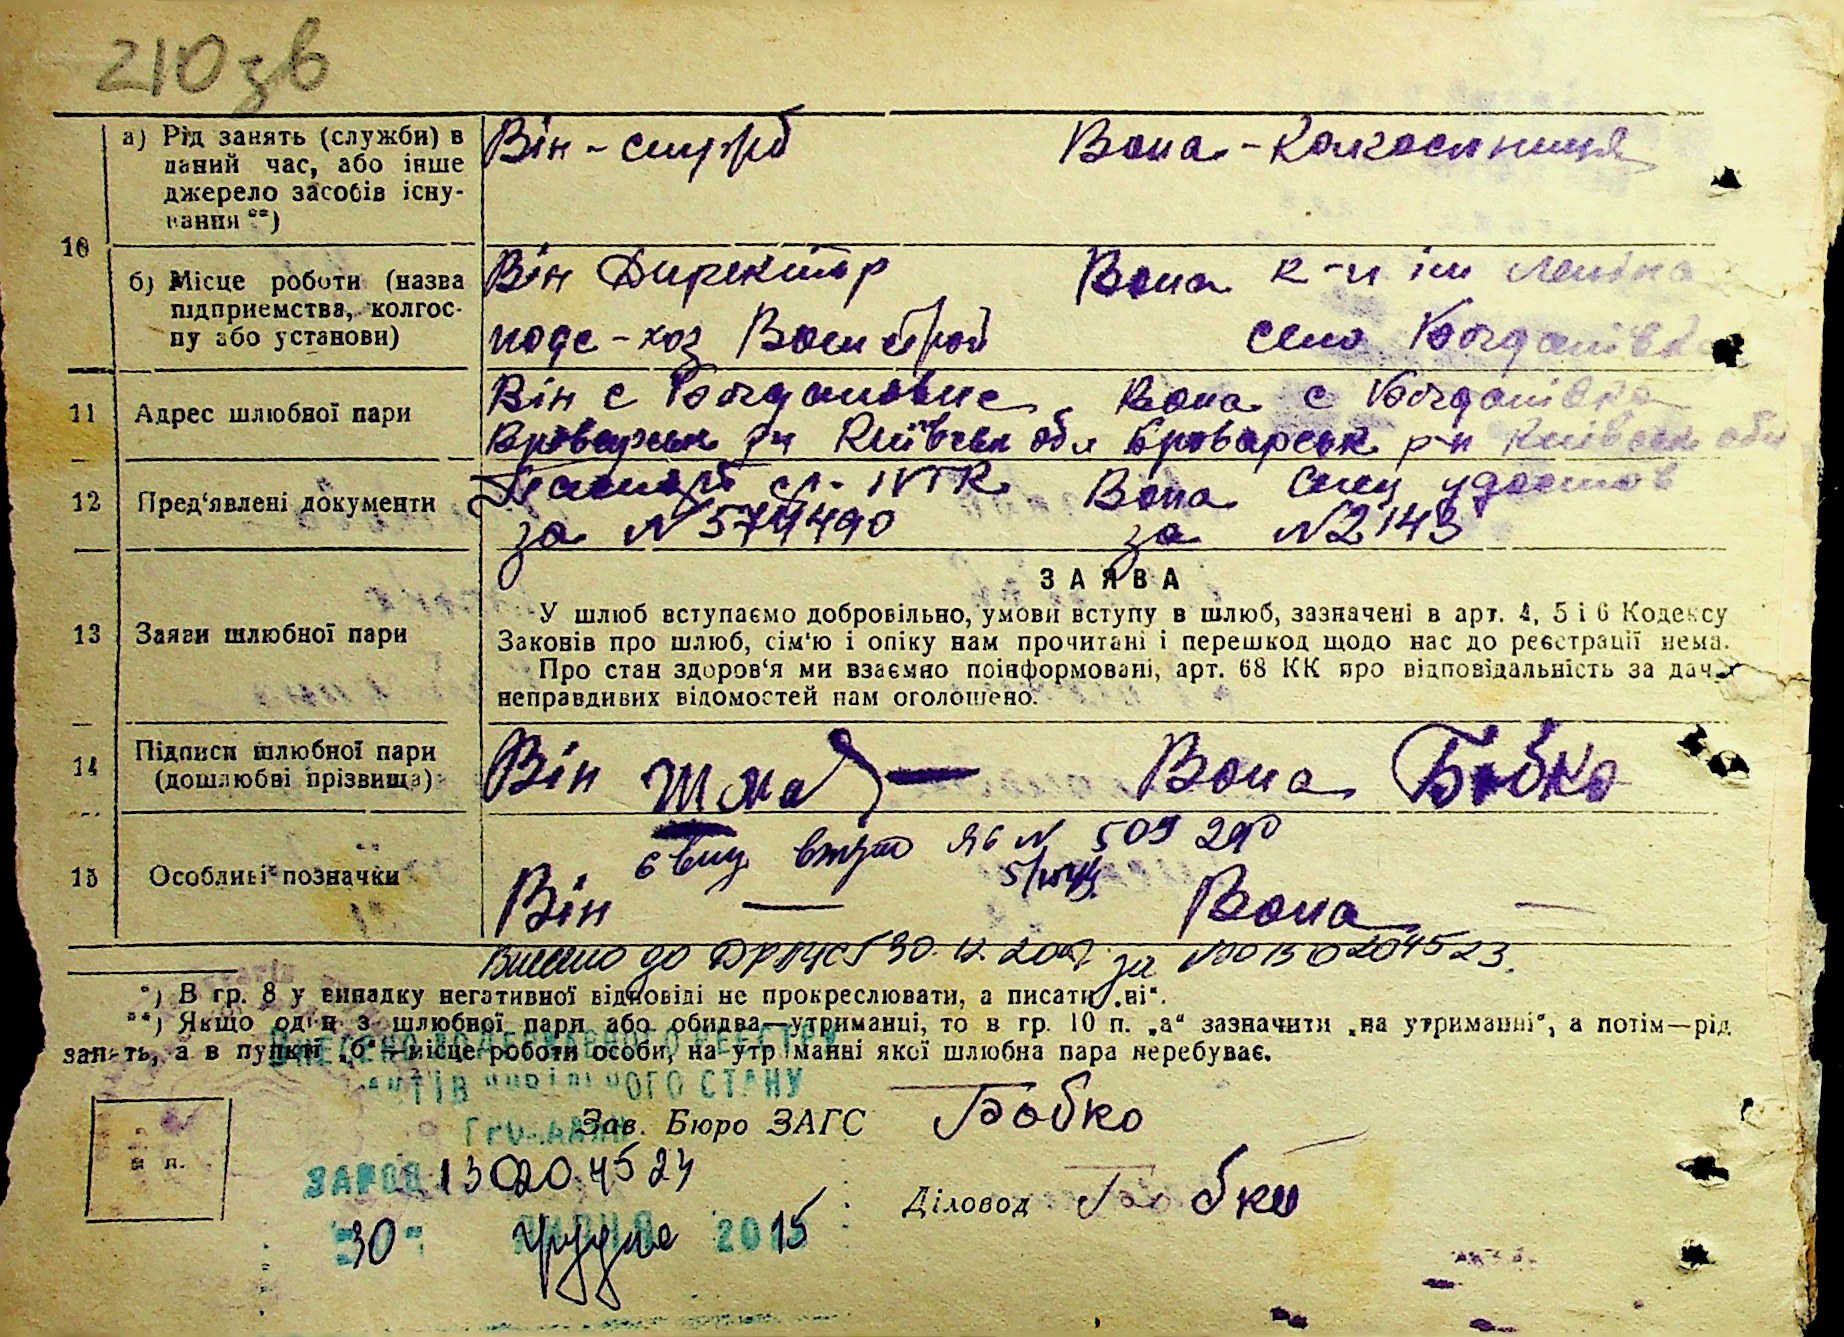 210 зв
а) Рід занять (служби) в
даний час, або інше
джерело засобів існу-
вання **)
Він - служб Вона - Колгоспниця
10
б) Місце роботи (назва
підприємства, колгос-
пу або установи)
Він Директор Вона к-п ім Леніна
подс-хоз село Богданівка
11 Адрес шлюбної пари
Він с Богдановке Вона с Богданівка
Броварськ р-н Київськ обл Броварськ р-н Київськ обл
12 Пред'явлені документи
Паспорт Вона удостов
за № 574490 за № 2143
ЗАЯВА
13 Заяви шлюбної пари
У шлюб вступаємо добровільно, умови вступу в шлюб, зазначені в арт. 4, 5 і 6 Кодексу
Законів про шлюб, сім'ю і опіку нам прочитані і перешкод щодо нас до реєстрації нема.
Про стан здоров'я ми взаємно поінформовані, арт. 68 КК про відповідальність за дач
неправдивих відомостей нам оголошено.
14 Підписи шлюбної пари
(дошлюбні прізвища)
Він Вона Бобко
15 Особливі позначки
№ 509 290
Він — Вона —
Внесено до ДРАЦСГ 30.12. за №00130204523.
*) В гр. 8 у випадку негативної відповіді не прокреслювати, а писати „ні".
**) Якщо один з шлюбної пари або обидва—утриманці, то в гр. 10 п. „а" зазначити „на утриманні", а потім—рід
занять, а в пункті „б"—місце роботи особи, на утриманні якої шлюбна пара перебуває.
ВНЕСЕНО ДО ДЕРЖАВНОГО РЕЄСТРУ
АКТІВ ЦИВІЛЬНОГО СТАНУ
ГРОМАДЯН
Зав. Бюро ЗАГС Бобко
м п.
ЗА №00 130204524
Діловод Бобко
"30" грудня 2015